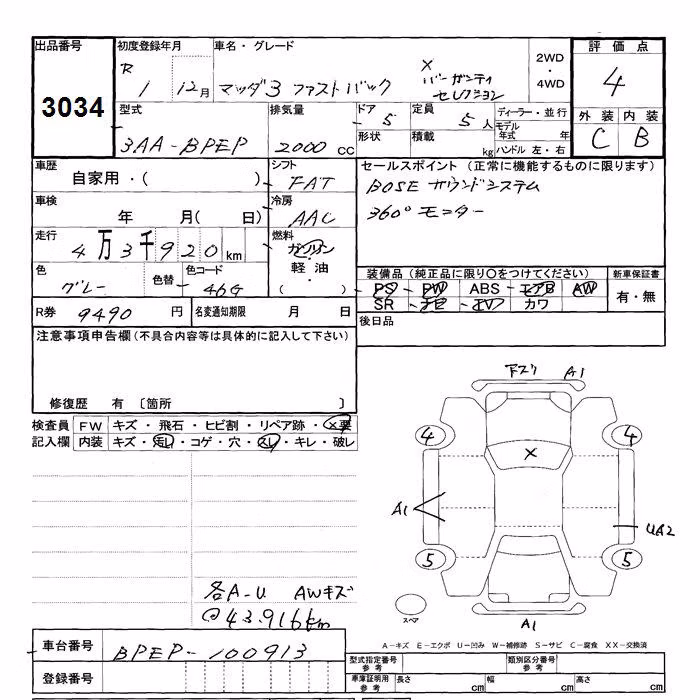 出品番号 3034
初度登録年月 R 1 12月
車名・グレード
マツダ3 ファストバック
X バーガンディ セレクション
2WD・4WD
評価点 4
外装 C 内装 B
型式 3AA-BPEP
排気量 2000 cc
ドア 5
定員 5人
形状
積載 kg
ディーラー・並行
モデル年式 年
ハンドル 左・右
車歴 自家用・( )
シフト FAT
セールスポイント (正常に機能するものに限ります)
BOSE サウンドシステム
360°モニター
車検 年 月( 日)
冷房 AAC
走行 4万3千920km
燃料 ガソリン・軽油・( )
色 グレー
色替
色コード 46G
装備品 (純正品に限り○をつけてください)
PS PW ABS エアB AW
SR ナビ TV カワ
新車保証書 有・無
R券 9490 円
名変通知期限 月 日
後日品
注意事項申告欄 (不具合内容等は具体的に記入して下さい)
修復歴 有 〔箇所 〕
検査員記入欄
FW キズ・飛石・ヒビ割・リペア跡・X要
内装 キズ・汚レ・コゲ・穴・スレ・キレ・破レ
下スリ A1
4 4
X
A1 UA2
5 5
スペア
A1
各A-U AWキズ
@43.916km
A-キズ E-エクボ U-凹み W-補修跡 S-サビ C-腐食 XX-交換済
車台番号 BPEP-100913
登録番号
型式指定番号 参考
類別区分番号 参考
車庫証明用 参考 長さ cm 幅 cm 高さ cm